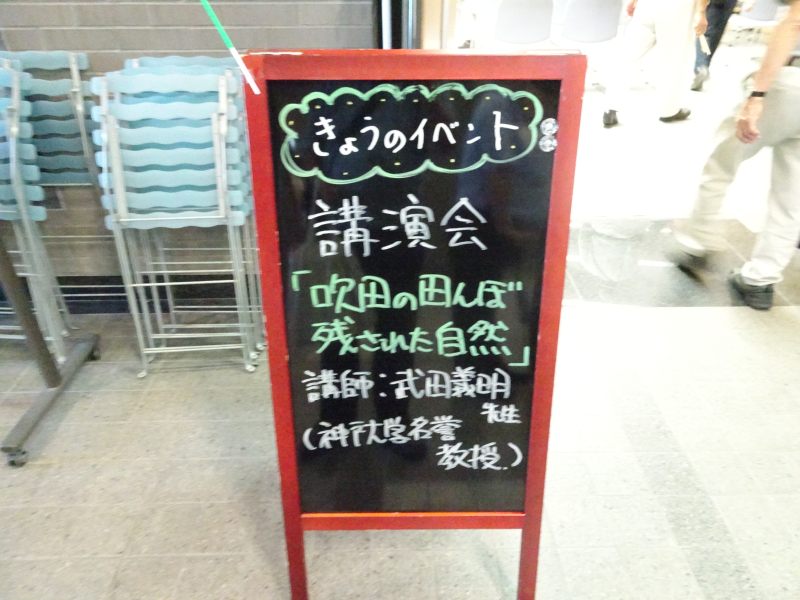 きょうのイベント
講演会
「吹田の田んぼ
残された自然」
講師:武田義明
先生
(神戸大学名誉
教授.)